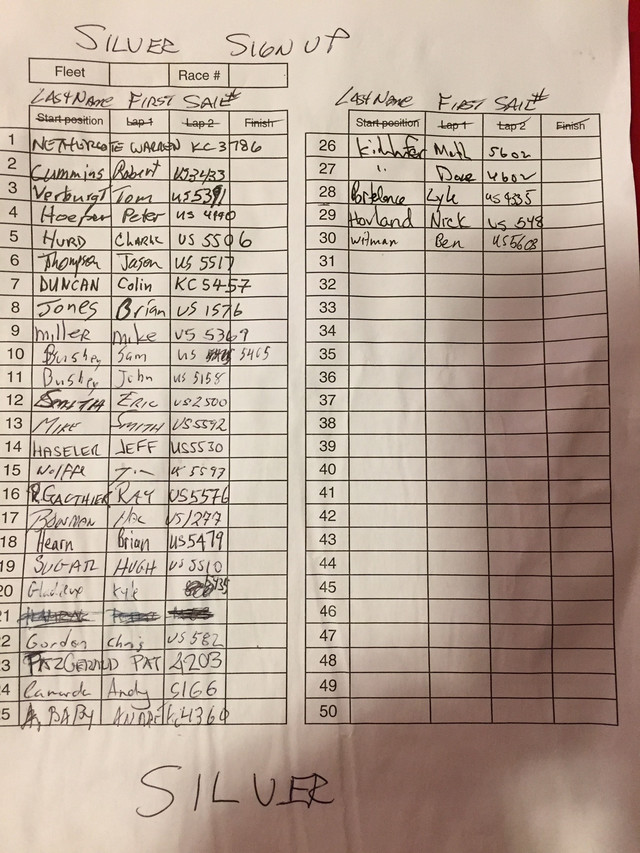 SILVER SIGN UP
Fleet Race #
LAST NAME FIRST SAIL#
Start position Lap 1 Lap 2 Finish
1 NETHERCOTE WARREN KC3786
2 Cummins Robert US3433
3 Verburgt Tom US5391
4 Hoeper Peter US 4490
5 HURD CHARLIE US 5506
6 Thompson Jason US 5517
7 DUNCAN Colin KC 5457
8 Jones Brian US 1576
9 miller mike US 5369
10 Bushey Sam US 5465
11 Bushey John US 5158
12 SMITH ERIC US2500
13 MIKE SMITH US5592
14 HASELER JEFF US5530
15 Wolffe Tim US 5597
16 R GAUTHIER RAY US5576
17 BOWMAN US1277
18 Hearn Brian US5479
19 SUGAR HUGH US5510
20 Kyle
21
22 Gordon Chris US582
23 FITZGERALD PAT 2203
24 Camarda Andy 5166
25 BABY ANDRE KC4360
LAST NAME FIRST SAIL#
Start position Lap 1 Lap 2 Finish
26 5602
27 " Dave 4602
28 Lyle US4335
29 Hovland Nick US 548
30 Witman Ben US5608
31
32
33
34
35
36
37
38
39
40
41
42
43
44
45
46
47
48
49
50
SILVER